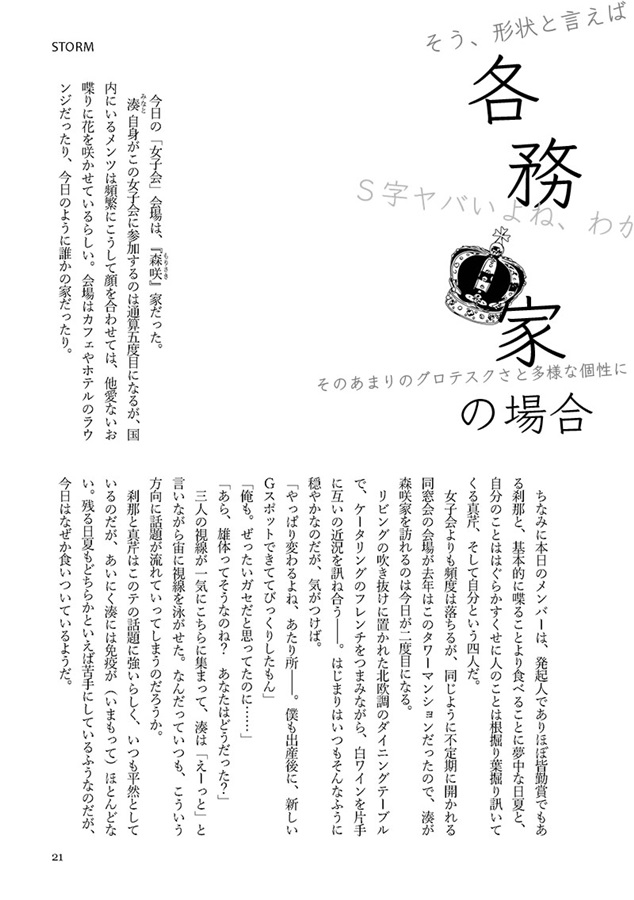 STORM
そう、形状と言えば
各務家
S字ヤバいよね、わか
そのあまりのグロテスクさと多様な個性に
の場合
今日の「女子会」会場は、『森咲』家だった。
もりさき
湊自身がこの女子会に参加するのは通算五度目になるが、国
みなと
内にいるメンツは頻繁にこうして顔を合わせては、他愛ないお
喋りに花を咲かせているらしい。会場はカフェやホテルのラウ
ンジだったり、今日のように誰かの家だったり。
ちなみに本日のメンバーは、発起人でありほぼ皆勤賞でもあ
る刹那と、基本的に喋ることより食べることに夢中な日夏と、
自分のことははぐらかすくせに人のことは根掘り葉掘り訊いて
くる真芹、そして自分という四人だ。
女子会よりも頻度は落ちるが、同じように不定期に開かれる
同窓会の会場が去年はこのタワーマンションだったので、湊が
森咲家を訪れるのは今日が二度目になる。
リビングの吹き抜けに置かれた北欧調のダイニングテーブル
で、ケータリングのフレンチをつまみながら、白ワインを片手
に互いの近況を訊ね合う――。はじまりはいつもそんなふうに
穏やかなのだが、気がつけば。
「やっぱり変わるよね、あたり所――。僕も出産後に、新しい
Gスポットできててびっくりしたもん」
「俺も。ぜったいガセだと思ってたのに……」
「あら、雄体ってそうなのね? あなたはどうだった?」
三人の視線が一気にこちらに集まって、湊は「えーっと」と
言いながら宙に視線を泳がせた。なんだっていつも、こういう
方向に話題が流れていってしまうのだろうか。
刹那と真芹はこのテの話題に強いらしく、いつも平然として
いるのだが、あいにく湊には免疫が(いまもって)ほとんどな
い。残る日夏もどちらかといえば苦手にしているふうなのだが、
今日はなぜか食いついているようだ。
21